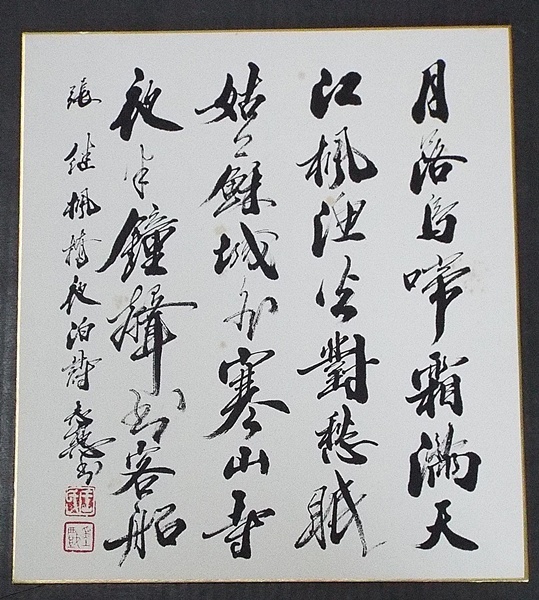 月落烏啼霜滿天
江楓漁火對愁眠
姑蘇城外寒山寺
夜半鐘聲到客船
張継楓橋夜泊詩 書